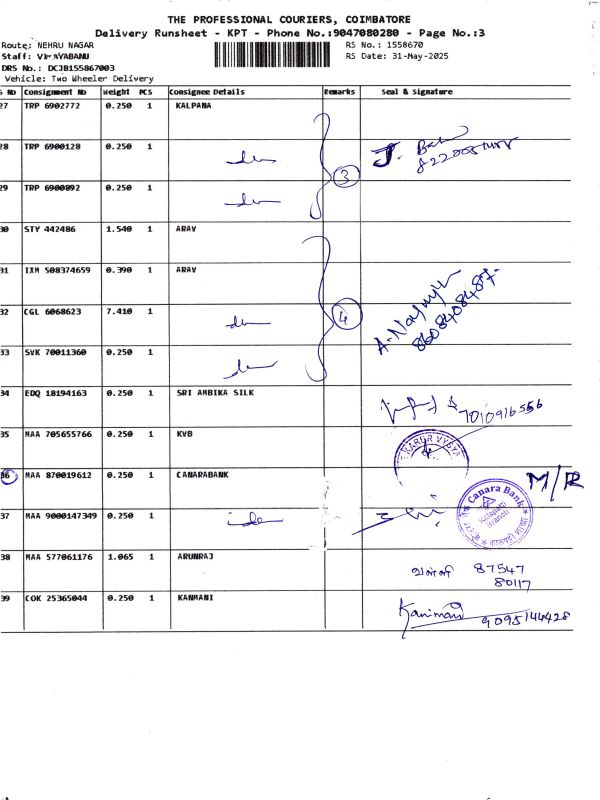 THE PROFESSIONAL COURIERS, COIMBATORE
Delivery Runsheet - KPT - Phone No.:9047080280 - Page No.:3
Route: NEHRU NAGAR RS No.: 1558670
Staff: RS Date: 31-May-2025
DRS No.: DCJB155867003
Vehicle: Two Wheeler Delivery
S No Consignment No Weight PCS Consignee Details Remarks Seal & Signature
27 TRP 6902772 0.250 1 KALPANA
28 TRP 6900128 0.250 1 J.
29 TRP 6900892 0.250 1 3
30 STY 442486 1.540 1 ARAV
31 IXM 508374659 0.390 1 ARAV
32 CGL 6068623 7.410 1 4 8608408487
33 SVK 70011360 0.250 1
34 EDQ 18194163 0.250 1 SRI AMBIKA SILK 7010916556
35 MAA 705655766 0.250 1 KVB KARUR VYSYA
36 MAA 870019612 0.250 1 CANARABANK M/R
Canara Bank
Branch
37 MAA 9000147349 0.250 1
38 MAA 577061176 1.065 1 ARUNRAJ 87547
80117
39 COK 25365044 0.250 1 KANMANI Kanimani
9095144428